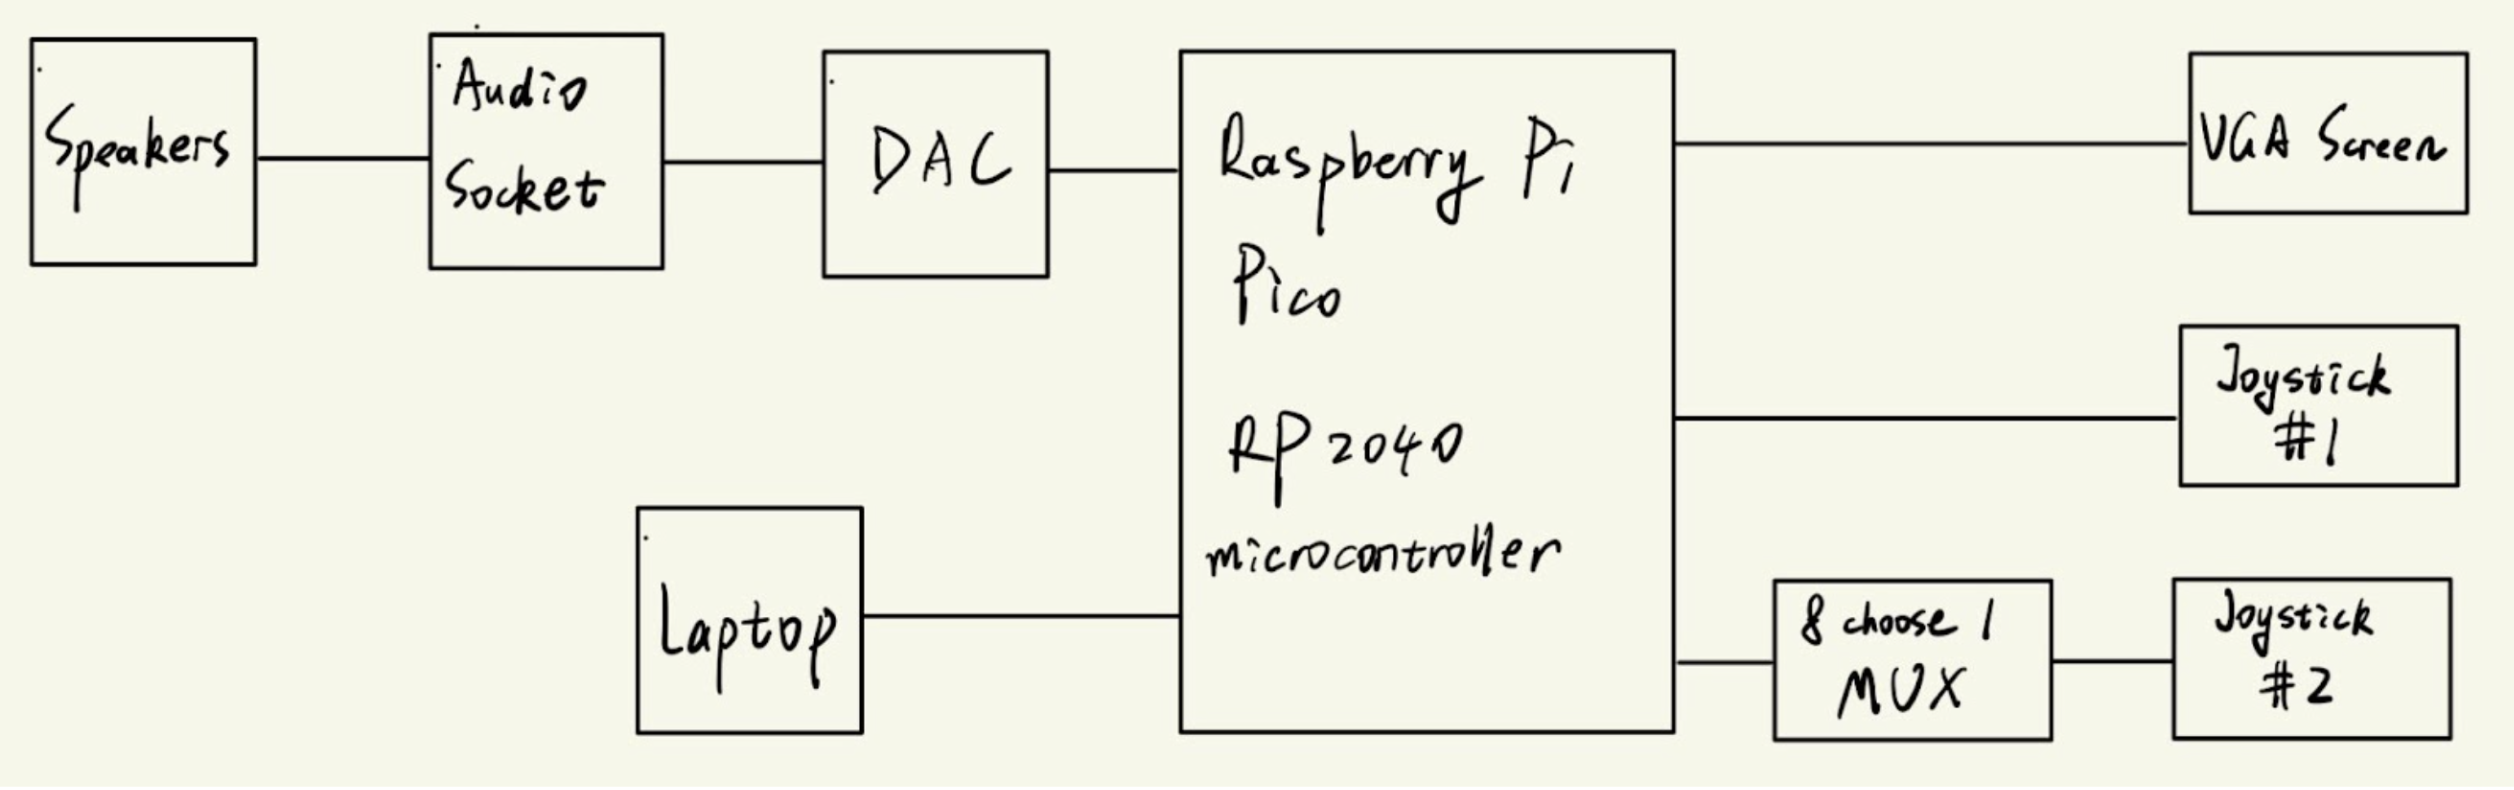 Speakers
Audio
Socket
DAC
Raspberry Pi
Pico
RP2040
microcontroller
VGA Screen
Joystick
#1
Laptop
8 choose 1
MUX
Joystick
#2